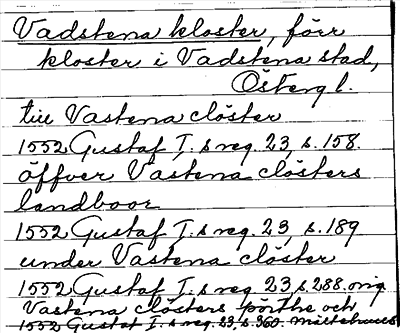 Vadstena kloster, förr
kloster i Vadstena stad,
Östergl.
till Vastena clöster
1552 Gustaf I.s reg. 23, s. 158.
öffver Vastena clösters
landboor
1552 Gustaf I.s reg. 23, s. 189
under Vastena clöster
1552 Gustaf I.s reg. 23 s. 288. orig.
Vastena clösters pörthe och
1552 Gustaf I.s reg. 23, s. 360.